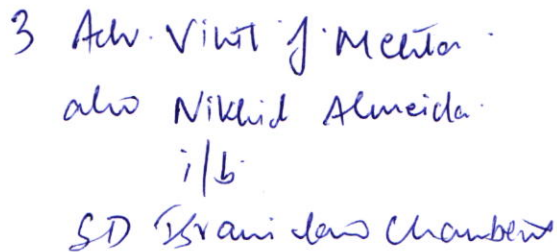 3 Adv. Vinit J. Mehta.
adv Nikhil Almeida.
i/b.
SD Israni Law Chambers